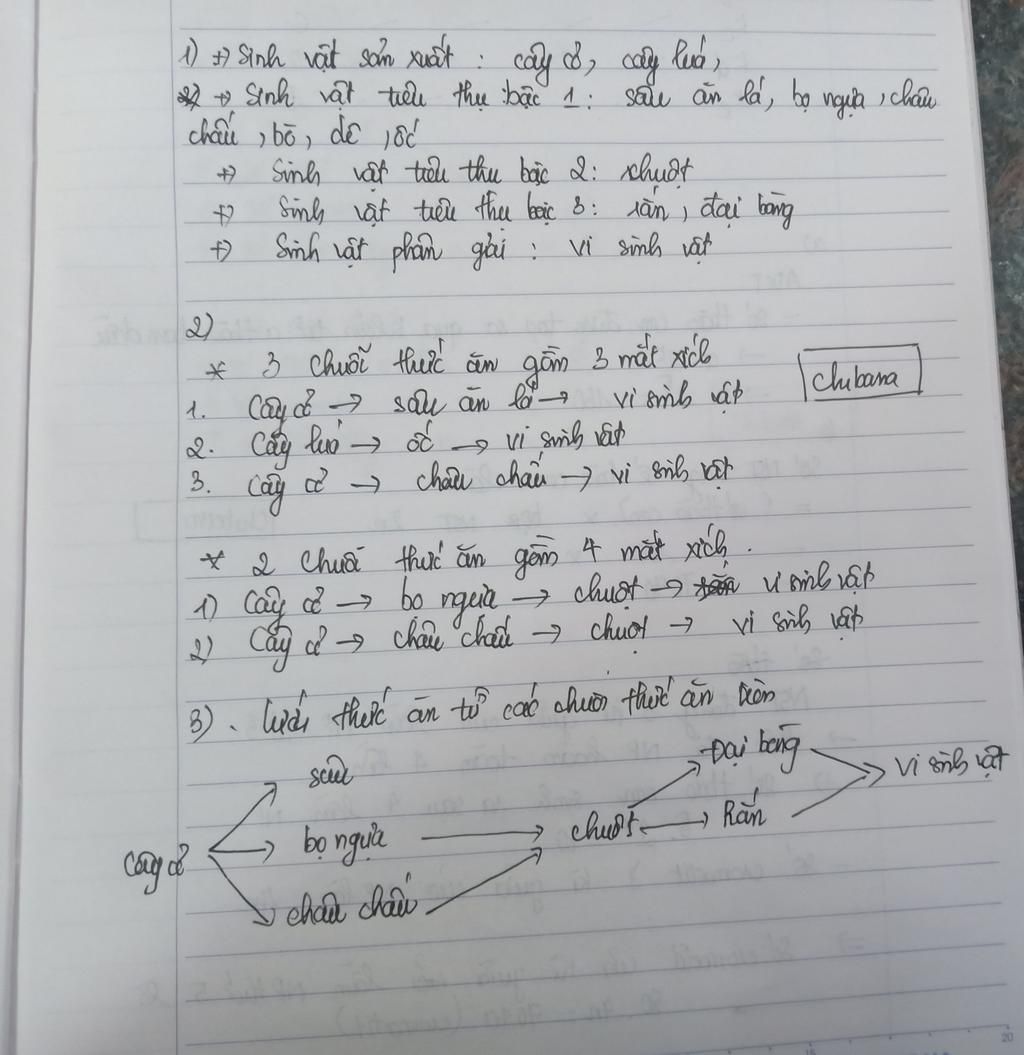 1) +) Sinh vật sản xuất : cây cỏ, cây lúa,
+) Sinh vật tiêu thụ bậc 1 : sâu ăn lá, bọ ngựa, châu
chấu, bò, dê, ốc
+) Sinh vật tiêu thụ bậc 2: chuột
+) Sinh vật tiêu thụ bậc 3: rắn, đại bàng
+) Sinh vật phân giải : vi sinh vật
2)
* 3 chuỗi thức ăn gồm 3 mắt xích
chibana
1. Cây cỏ → sâu ăn lá → vi sinh vật
2. Cây lúa → ốc → vi sinh vật
3. Cây cỏ → châu chấu → vi sinh vật
* 2 chuỗi thức ăn gồm 4 mắt xích.
1) Cây cỏ → bọ ngựa → chuột → vi sinh vật
2) Cây cỏ → châu chấu → chuột → vi sinh vật
3). lưới thức ăn từ các chuỗi thức ăn trên
sâu
Đại bàng
vi sinh vật
Cây cỏ
bọ ngựa
chuột
Rắn
châu chấu
20